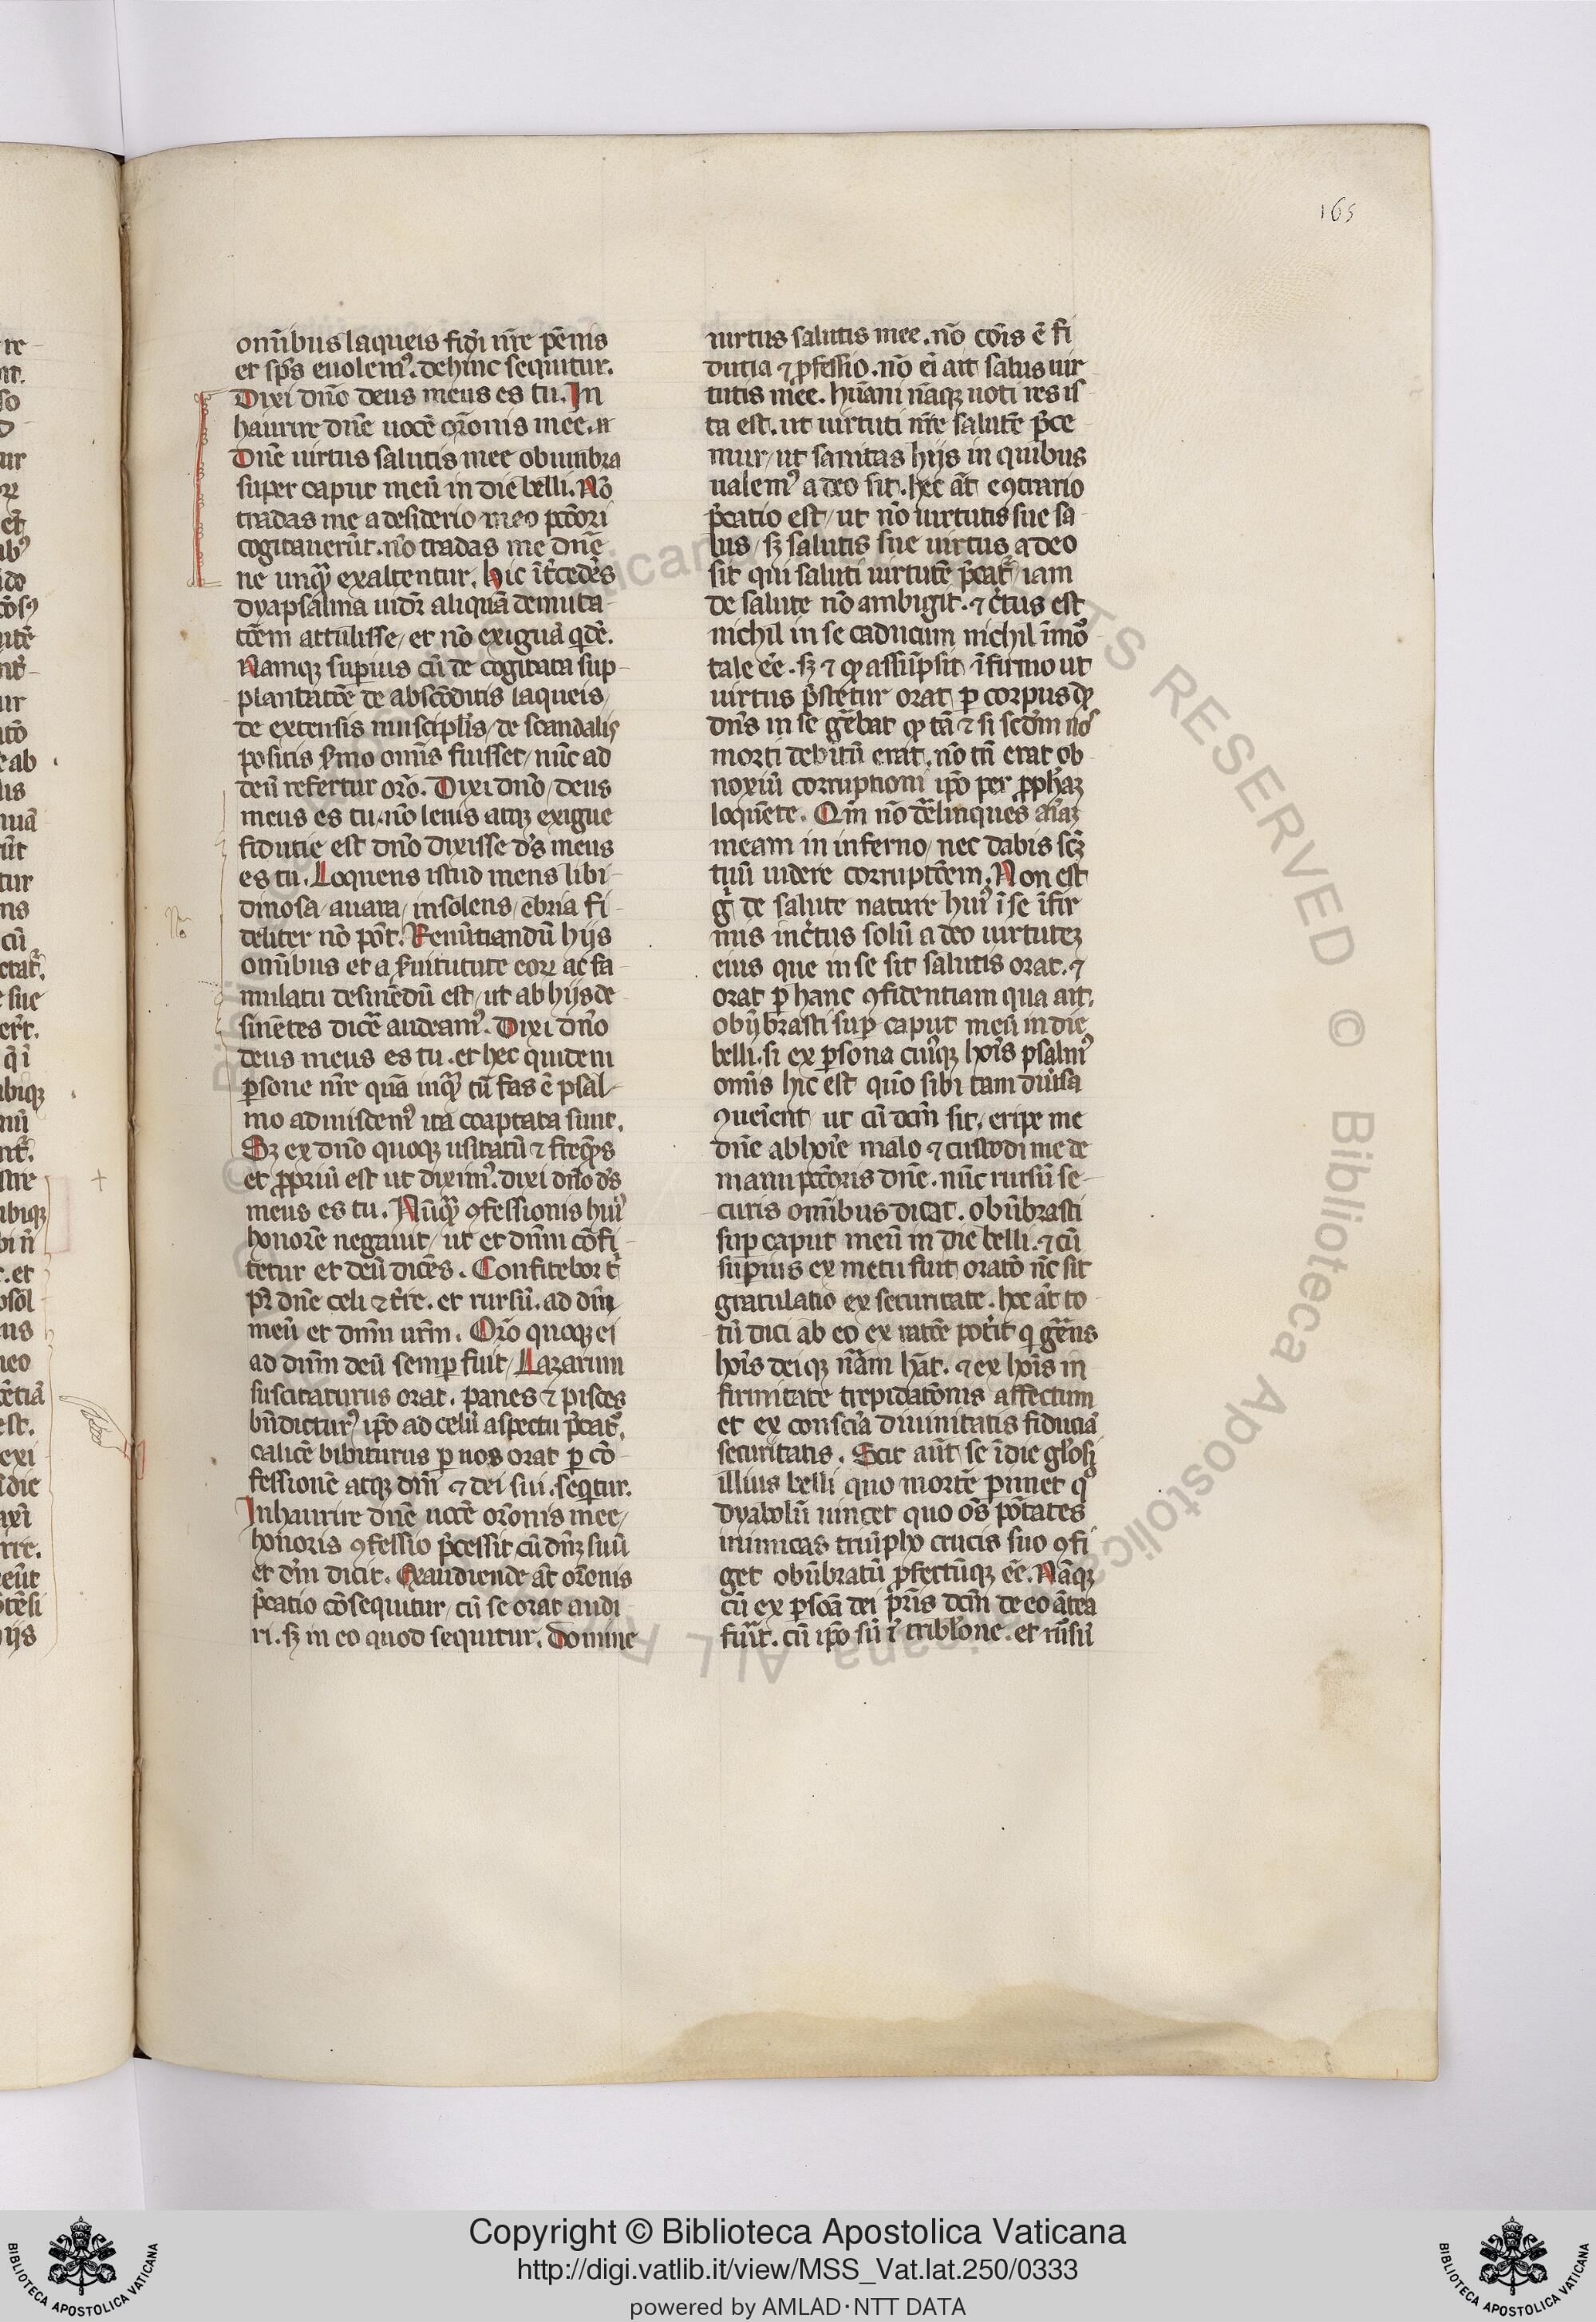 165
omībus laqueis fidei nr̄e pēnis
et sp̄s euolem⁹. dehinc sequitur.
Dixi dn̄o deus meus es tu. In
haurire dn̄e uocē or̄onis mee. ⁊
Dn̄e uirtus salutis mee obumbra
super caput meū in die belli. Nō
tradas me a desiderio meo pctōri
cogitauerūt. nō tradas me dn̄e
ne unq̄ exaltentur. hic īt̄cedēs
dyapsalma uidr̄ aliquā demuta
tōem attulisse / et nō exiguā qdē.
Namq; supius cū de cogitata sup
plantatōe de abscōditis laqueis /
de extensis musciplis / de scandalis
positis s̄mo omīs fuisset / nūc ad
deū refertur or̄o. Dixi dn̄o / deus
meus es tu. nō lenis atq; exigue
fidutie est dn̄o dixisse d̄s meus
es tu. Loquens istud mens libi
dinosa / auara / insolens / ebria fi
deliter nō pōt. Renūtiandū hijs
omībus et a s̄uitutute eoꝝ ac fa
mulatu desinēdū est / ut ab hijs de
sinētes dicē audeam⁹. Dixi dn̄o
deus meus es tu. et hec quidem
ꝑsone nr̄e quā inq̄ tū fas ē psal
mo admiscem⁹ ita coaptata sunt.
Sꝫ ex dn̄o quoqꝫ usitatū ⁊ freq̄ns
et ꝓpriū est ut dixim⁹. dixi dn̄o d̄s
meus es tu. Nūq̄ ꝯfessionis hui⁹
honorē negauit / ut et dn̄m cōfi
tetur et deū dicēs. Confitebor t̄
pr̄ dn̄e celi ⁊ t̄re. et rursū. ad dm̄
meū et dn̄m ur̄m. Or̄o quoqꝫ ei
ad dn̄m deū semꝑ fuit / Lazarum
suscitaturus orat. panes ⁊ pisces
bn̄dictur⁹ ip̄o ad celū aspectu p̄cat̄.
calicē bibiturus ꝓ nos orat ꝑ cō
fessionē atqꝫ dn̄i ⁊ dei sui. seqtur.
Inhaurire dn̄e uocē or̄onis mee /
honoris ꝯfessio p̄cessit / cū dn̄ꝫ suū
et dm̄ dicit. Exaudiende āt or̄onis
p̄catio cōsequitur / cū se orat audi
ri. sꝫ in eo quod sequitur. Domine
uirtus salutis mee. nō cōis ē fi
dutia ⁊ ꝓfessio. nō ei ait salus uir
tutis mee. humani nāqꝫ uoti res is
ta est. ut uirtuti nr̄e salutē p̄ce
mur / ut sanitas hijs in quibus
ualem⁹ a deo sit. hec āt eꝯtrario
p̄catio est / ut nō uirtutis sue sa
lus / sꝫ salutis sue uirtus a deo
sit qui saluti uirtutē p̄cat̄ / iam
de salute nō ambigit. ⁊ c̄tus est
nichil in se caducum nichil īmo
tale eē. sꝫ ⁊ qꝫ assūpsit īfirmo ut
uirtus p̄stetur orat / ꝑ corpus qꝫ
dn̄s in se gēbat qꝫ tā ⁊ si scdm̄ nos
morti debitū erat. nō tn̄ erat ob
noxiū corruptioni ip̄o per ꝓphaꝫ
loquēte. Qm̄ nō derelinques aīaꝫ
meam in inferno / nec dabis scꝫ
tuū uidere corruptōem. Non est
g̊ de salute nature hui⁹ ī se īfir
mus inc̄tus solū a deo uirtuteꝫ
eius que in se sit salutis orat. ⁊
orat ꝑ hanc ꝯfidentiam qua ait.
obūbrasti suꝑ caput meū in die
belli. si ex ꝑsona cui⁹qꝫ hoīs psalm⁹
omīs hic est quō sibi tam diūsa
ꝯueīent / ut cū dcm̄ sit / eripe me
dn̄e ab hoīe malo ⁊ custodi me de
manu pctōris dn̄e. nūc rursū se
curis omībus dicat. obūbrasti
suꝑ caput meū in die belli. ⁊ cū
supius ex metu fuit orato nc̄ sit
gratulatio ex securitate. hoc āt to
tū dici ab eo ex ratōe pot̄it q gēns
hoīs deiqꝫ nām hāt. ⁊ ex hoīs in
firmitate trepidatōnis affectum
et ex consciā diuinitatis fiduciā
securitatis. Scit aūt se ī die
illius belli quo mortē punet q°
dyabolū uincet quo oēs ptātes
inimicas triūpho crucis suo ꝯfi
get obūbratū ꝓfectūqꝫ eē. Nāqꝫ
cū ex ꝑsoā dei pr̄is dcm̄ de eo ātea
fuīt. cū ip̄o sū ī tribl̄one. et rursū
Copyright © Biblioteca Apostolica Vaticana
http://digi.vatlib.it/view/MSS_Vat.lat.250/0333
powered by AMLAD·NTT DATA
BIBLIOTECA APOSTOLICA VATICANA
BIBLIOTECA APOSTOLICA VATICANA